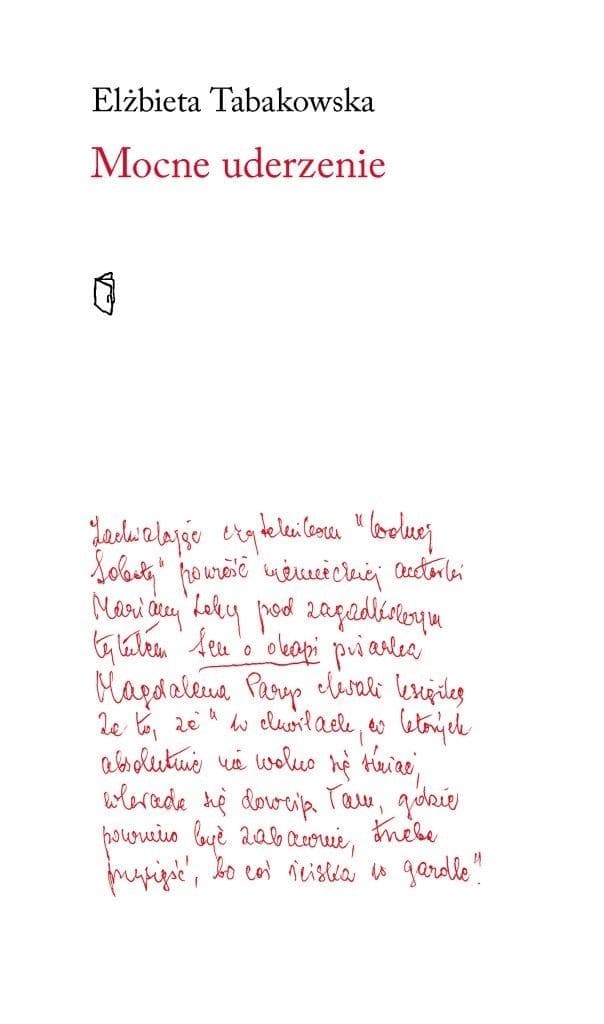 Elżbieta Tabakowska
Mocne uderzenie
Zachwalając czytelnikom "Wolnej
Soboty" powieść niemieckiej autorki
Mariany Leky pod zagadkowym
tytułem Sen o okapi pisarka
Magdalena Parys chwali książkę
za to, że "w chwilach, w których
absolutnie nie wolno się śmiać,
wkrada się dowcip. Tam, gdzie
powinno być zabawnie, trzeba
przysiąść, bo coś ściska w gardle"